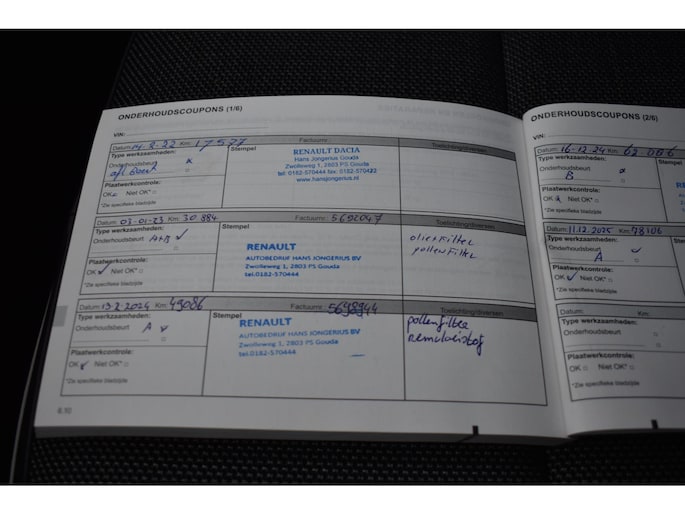 ONDERHOUDSCOUPONS (1/6)
VIN:
Datum: 04-2-22 Km: 17577 Factuurnr.:
Type werkzaamheden: Stempel Toelichting/diversen
Onderhoudsbeurt x
afl Beurt
Plaatwerkcontrole:
OK Niet OK* □
*Zie specifieke bladzijde
RENAULT DACIA
Hans Jongerius Gouda
Zwolleweg 1, 2803 PS Gouda
tel: 0182-570444 fax: 0182-570422
www.hansjongerius.nl
Datum: 03-01-23 Km: 30 884 Factuurnr.: 5692047
Type werkzaamheden: Stempel Toelichting/diversen
Onderhoudsbeurt A+B ✓
Plaatwerkcontrole:
OK ✓ Niet OK* □
*Zie specifieke bladzijde
RENAULT
AUTOBEDRIJF HANS JONGERIUS BV
Zwolleweg 1, 2803 PS Gouda
tel.0182-570444
oliefilter
pollenfilter
Datum: 13-2-2024 Km: 49086 Factuurnr.: 5698944
Type werkzaamheden: Stempel Toelichting/diversen
Onderhoudsbeurt A ✓
Plaatwerkcontrole:
OK ✓ Niet OK* □
*Zie specifieke bladzijde
RENAULT
AUTOBEDRIJF HANS JONGERIUS BV
Zwolleweg 1, 2803 PS Gouda
tel.0182-570444
pollenfilter
remvloeistof
6.10
ONDERHOUDSCOUPONS (2/6)
VIN:
Datum: 16-12-24 Km: 62 006
Type werkzaamheden:
Onderhoudsbeurt
B
Plaatwerkcontrole:
OK Niet OK* □
*Zie specifieke bladzijde
Datum: 11.12.2025 Km: 78106
Type werkzaamheden:
Onderhoudsbeurt
A
Plaatwerkcontrole:
OK ✓ Niet OK* □
*Zie specifieke bladzijde
Datum: Km:
Type werkzaamheden:
Onderhoudsbeurt □
Plaatwerkcontrole:
OK □ Niet OK* □
*Zie specifieke bladzijde